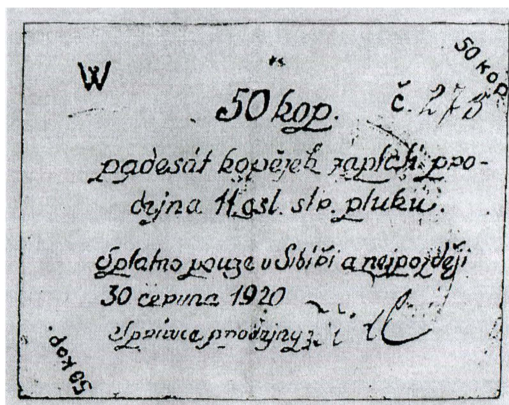 W
50 kop.
50 kop. č. 275
padesát kopějek zaplatí pro-
dejna 11 čsl. stř. pluku.
Splatno pouze v Sibiři a nejpozději
30 června 1920
Správce prodejny:
50 kop.